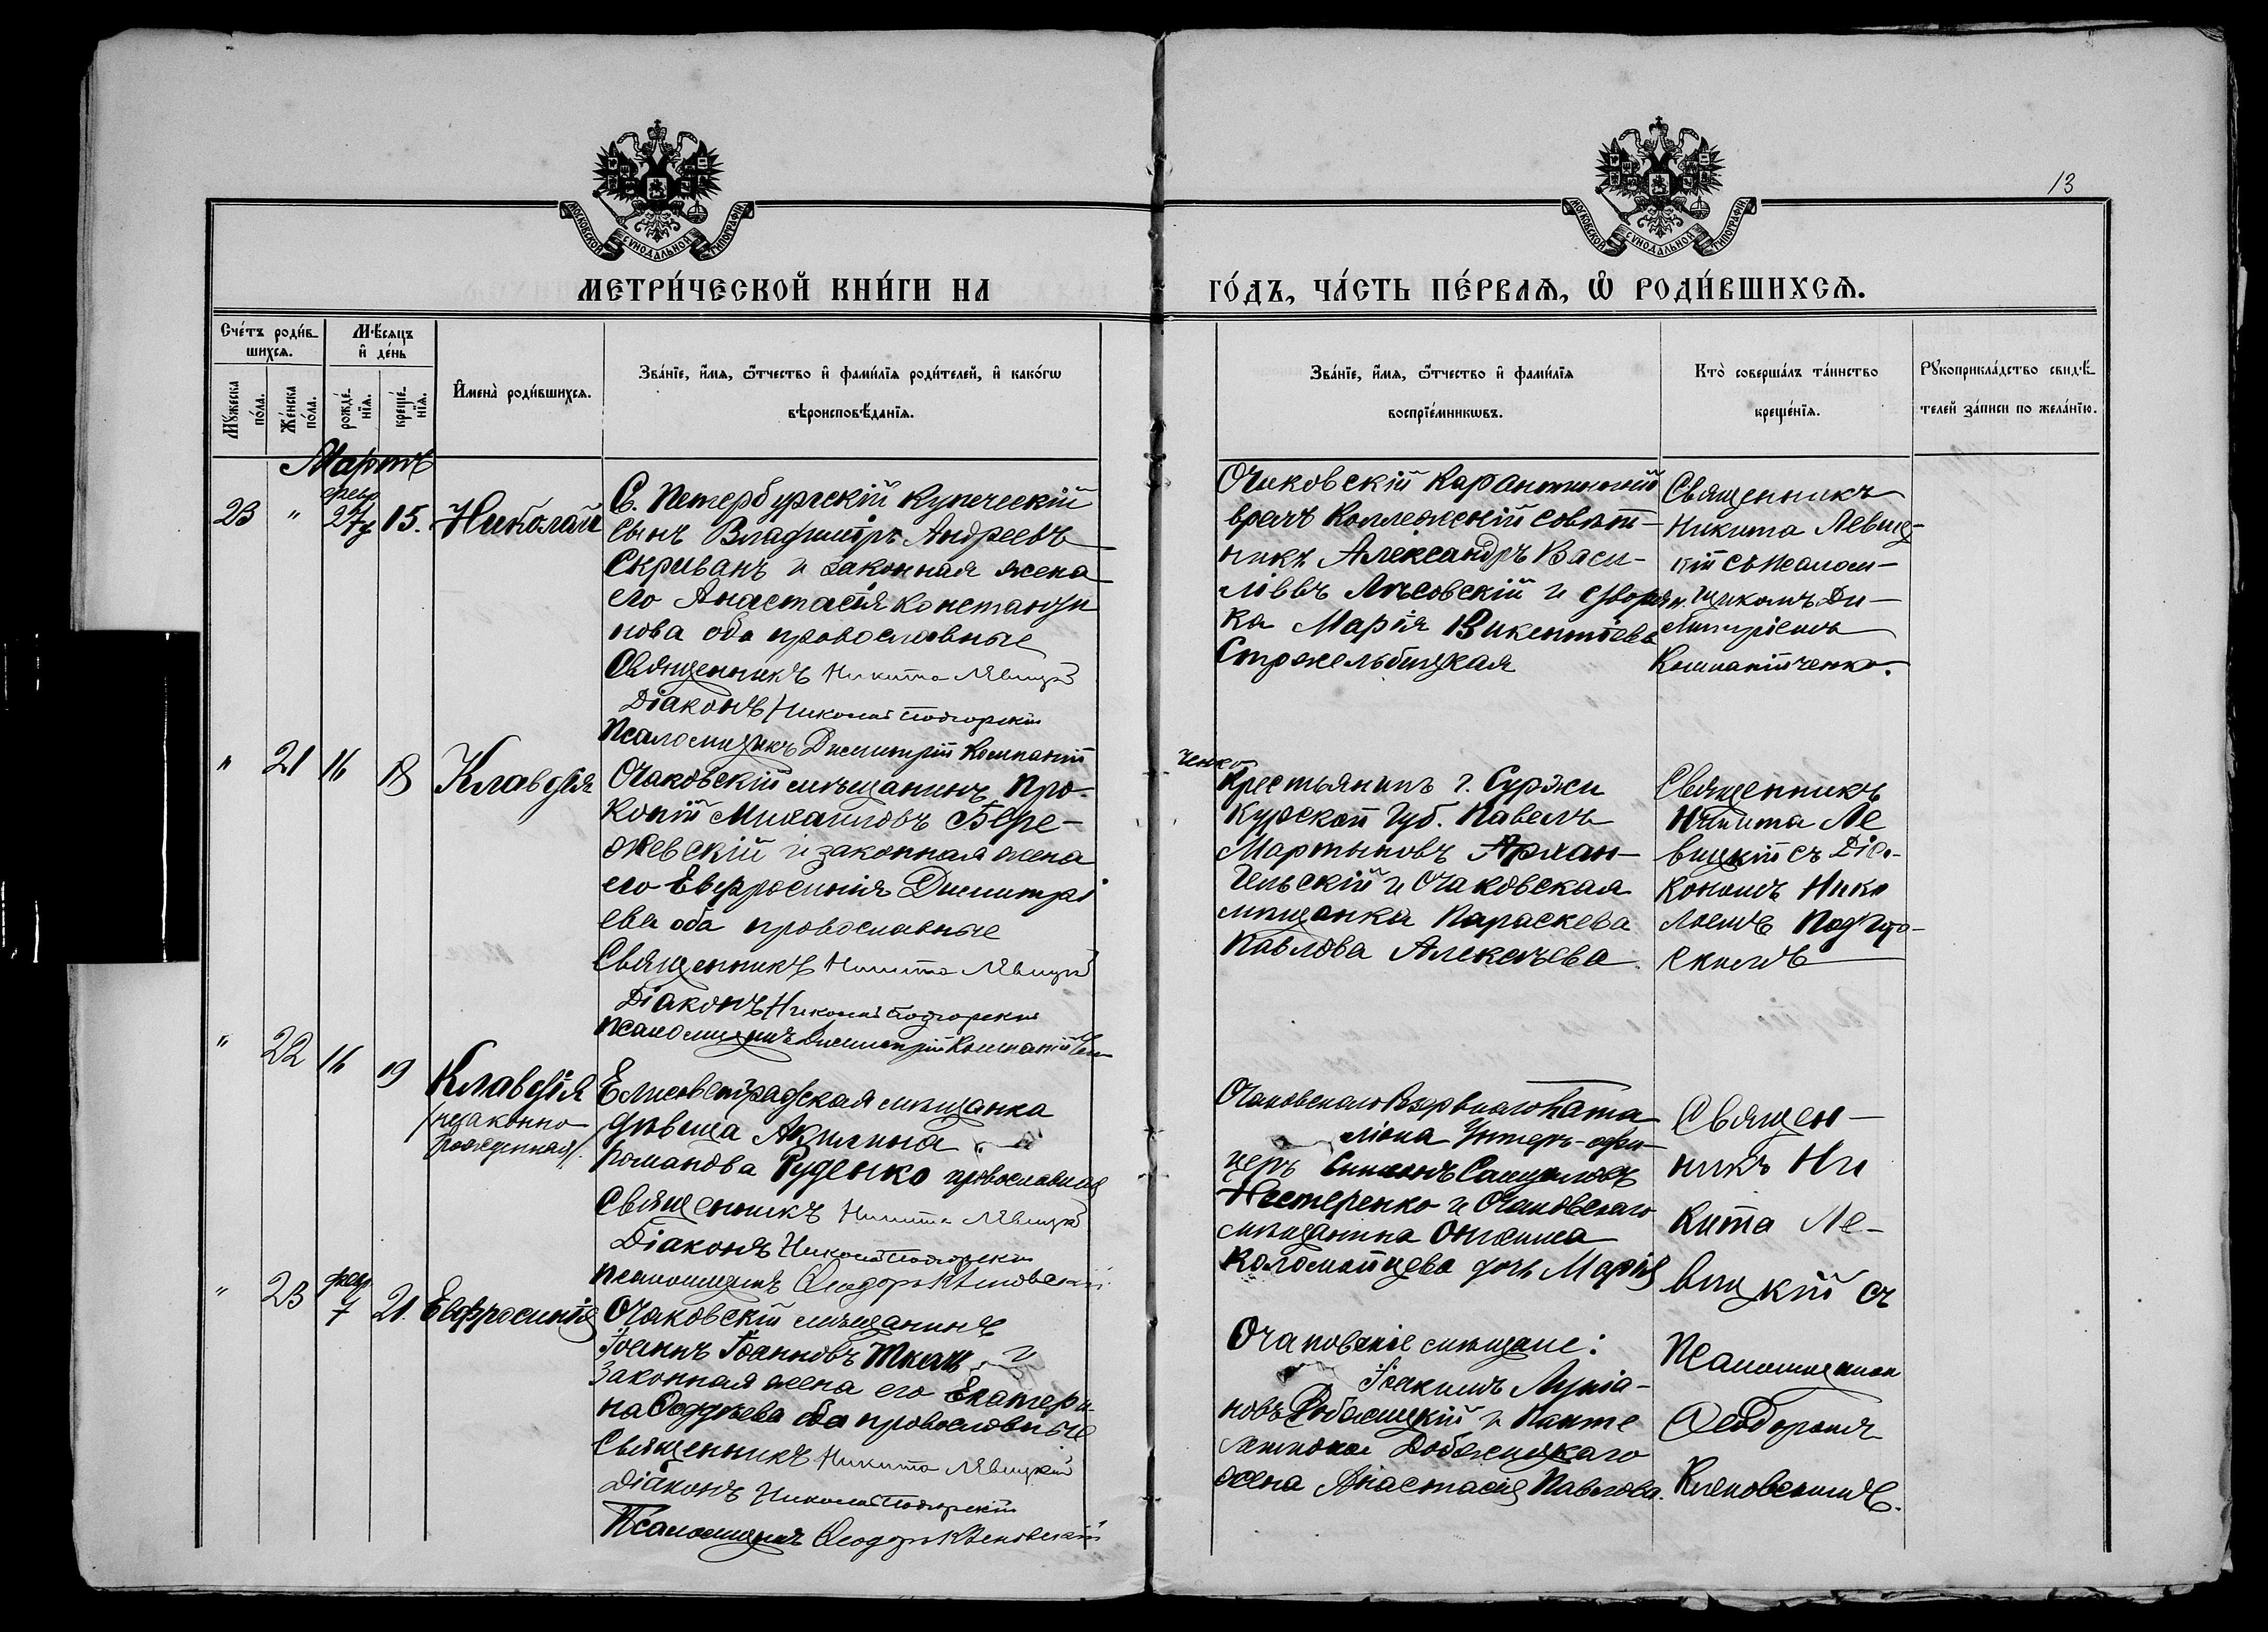 13
МОСКОВСКОЙ СУНОДАЛЬНОЙ ТИПОГРАФІИ
МОСКОВСКОЙ СУНОДАЛЬНОЙ ТИПОГРАФІИ
МЕТРИ́ЧЕСКОЙ КНИ́ГИ НА
ГО́ДЪ, ЧА́СТЬ ПЕ́РВАѦ, Ѡ҆ РОДИ́ВШИХСѦ.
Сче́тъ роди́в-
шихсѧ.
Мѣ́сѧцъ
и҆ де́нь
Мꙋ́жеска
по́ла.
Же́нска
по́ла.
рожде́-
нїѧ.
креще́-
нїѧ.
И҆мена̀ роди́вшихсѧ.
Зва́нїе, и҆́мѧ, ѻ҆́тчество и҆ фами́лїѧ роди́телей, и҆ како́гѡ
вѣроисповѣ́данїѧ.
Зва́нїе, и҆́мѧ, ѻ҆́тчество и҆ фами́лїѧ
воспрїе́мникѡвъ.
Кто̀ соверша́лъ та́инство
креще́нїѧ.
Рꙋкоприкла́дство свидѣ́-
телей за́писи по жела́нїю.
Мартъ
23 " февр 27 15. Николай
С. Петербургскій купеческій
сынъ Владиміръ Андреевъ
Скриванъ и законная жена
его Анастасія Константи
нова оба православные
Священникъ Никита Левицкій
Діаконъ Николай Подгорскій
Псаломщикъ Димитрій Компаній
ченко
Очаковскій Карантинный
врачъ Коллежскій совѣт-
никъ Александръ Васи-
ліевъ Лѣсовскій и дворян.
ка Марія Викентіева
Стрежельбицкая
Священникъ
Никита Левиц-
кій съ Псалом-
щикомъ Ди-
митріемъ
Компанійченко.
" 21 16 18 Клавдія
Очаковскій мѣщанинъ Про-
копій Михаиловъ Бере-
жевскій и законная жена
его Евфросинія Димитрі
ева оба православные
Священникъ Никита Левицкій
Діаконъ Николай Подгорскій
Псаломщикъ Димитрій Компанійчен
Крестьянинъ г. Суджи
Курской Губ. Павелъ
Мартыновъ Архан-
гельскій и Очаковская
мѣщанка Параскева
Павлова Алексѣева.
Священникъ
Никита Ле
вицкій съ Діа-
кономъ Нико
лаемъ Подгор-
скимъ
" 22 16 19 Клавдія
/незаконно-
рожденная/.
Елисаветградская мѣщанка
дѣвица Акилина
Романова Руденко православная
Священникъ Никита Левицкій
Діаконъ Николай Подгорскій
Псаломщикъ Ѳеодоръ Кіяновскій
Очаковскаго Резервнаго Бата
ліона Унтеръ-офи-
церъ Самуиловъ
Нестеренко и Очаковскаго
мѣщанина
Коломойцева дочь Марія
Священ-
никъ Ни
кита Ле-
вицкій съ
Псаломщикомъ
Ѳеодоромъ
Кіяновскимъ.
" 23 февр 7 21. Евфросинія
Очаковскій мѣщанинъ
Іоаннъ Іоанновъ Ткачъ и
законная жена его Екатери-
на Ѳаддѣева оба православные
Священникъ Никита Левицкій
Діаконъ Николай Подгорскій
Псаломщикъ Ѳеодоръ Кіяновскій
Очаковскіе мѣщане:
Іоакимъ Лукіа-
новъ и Панте
жена Анастасія Павлова.